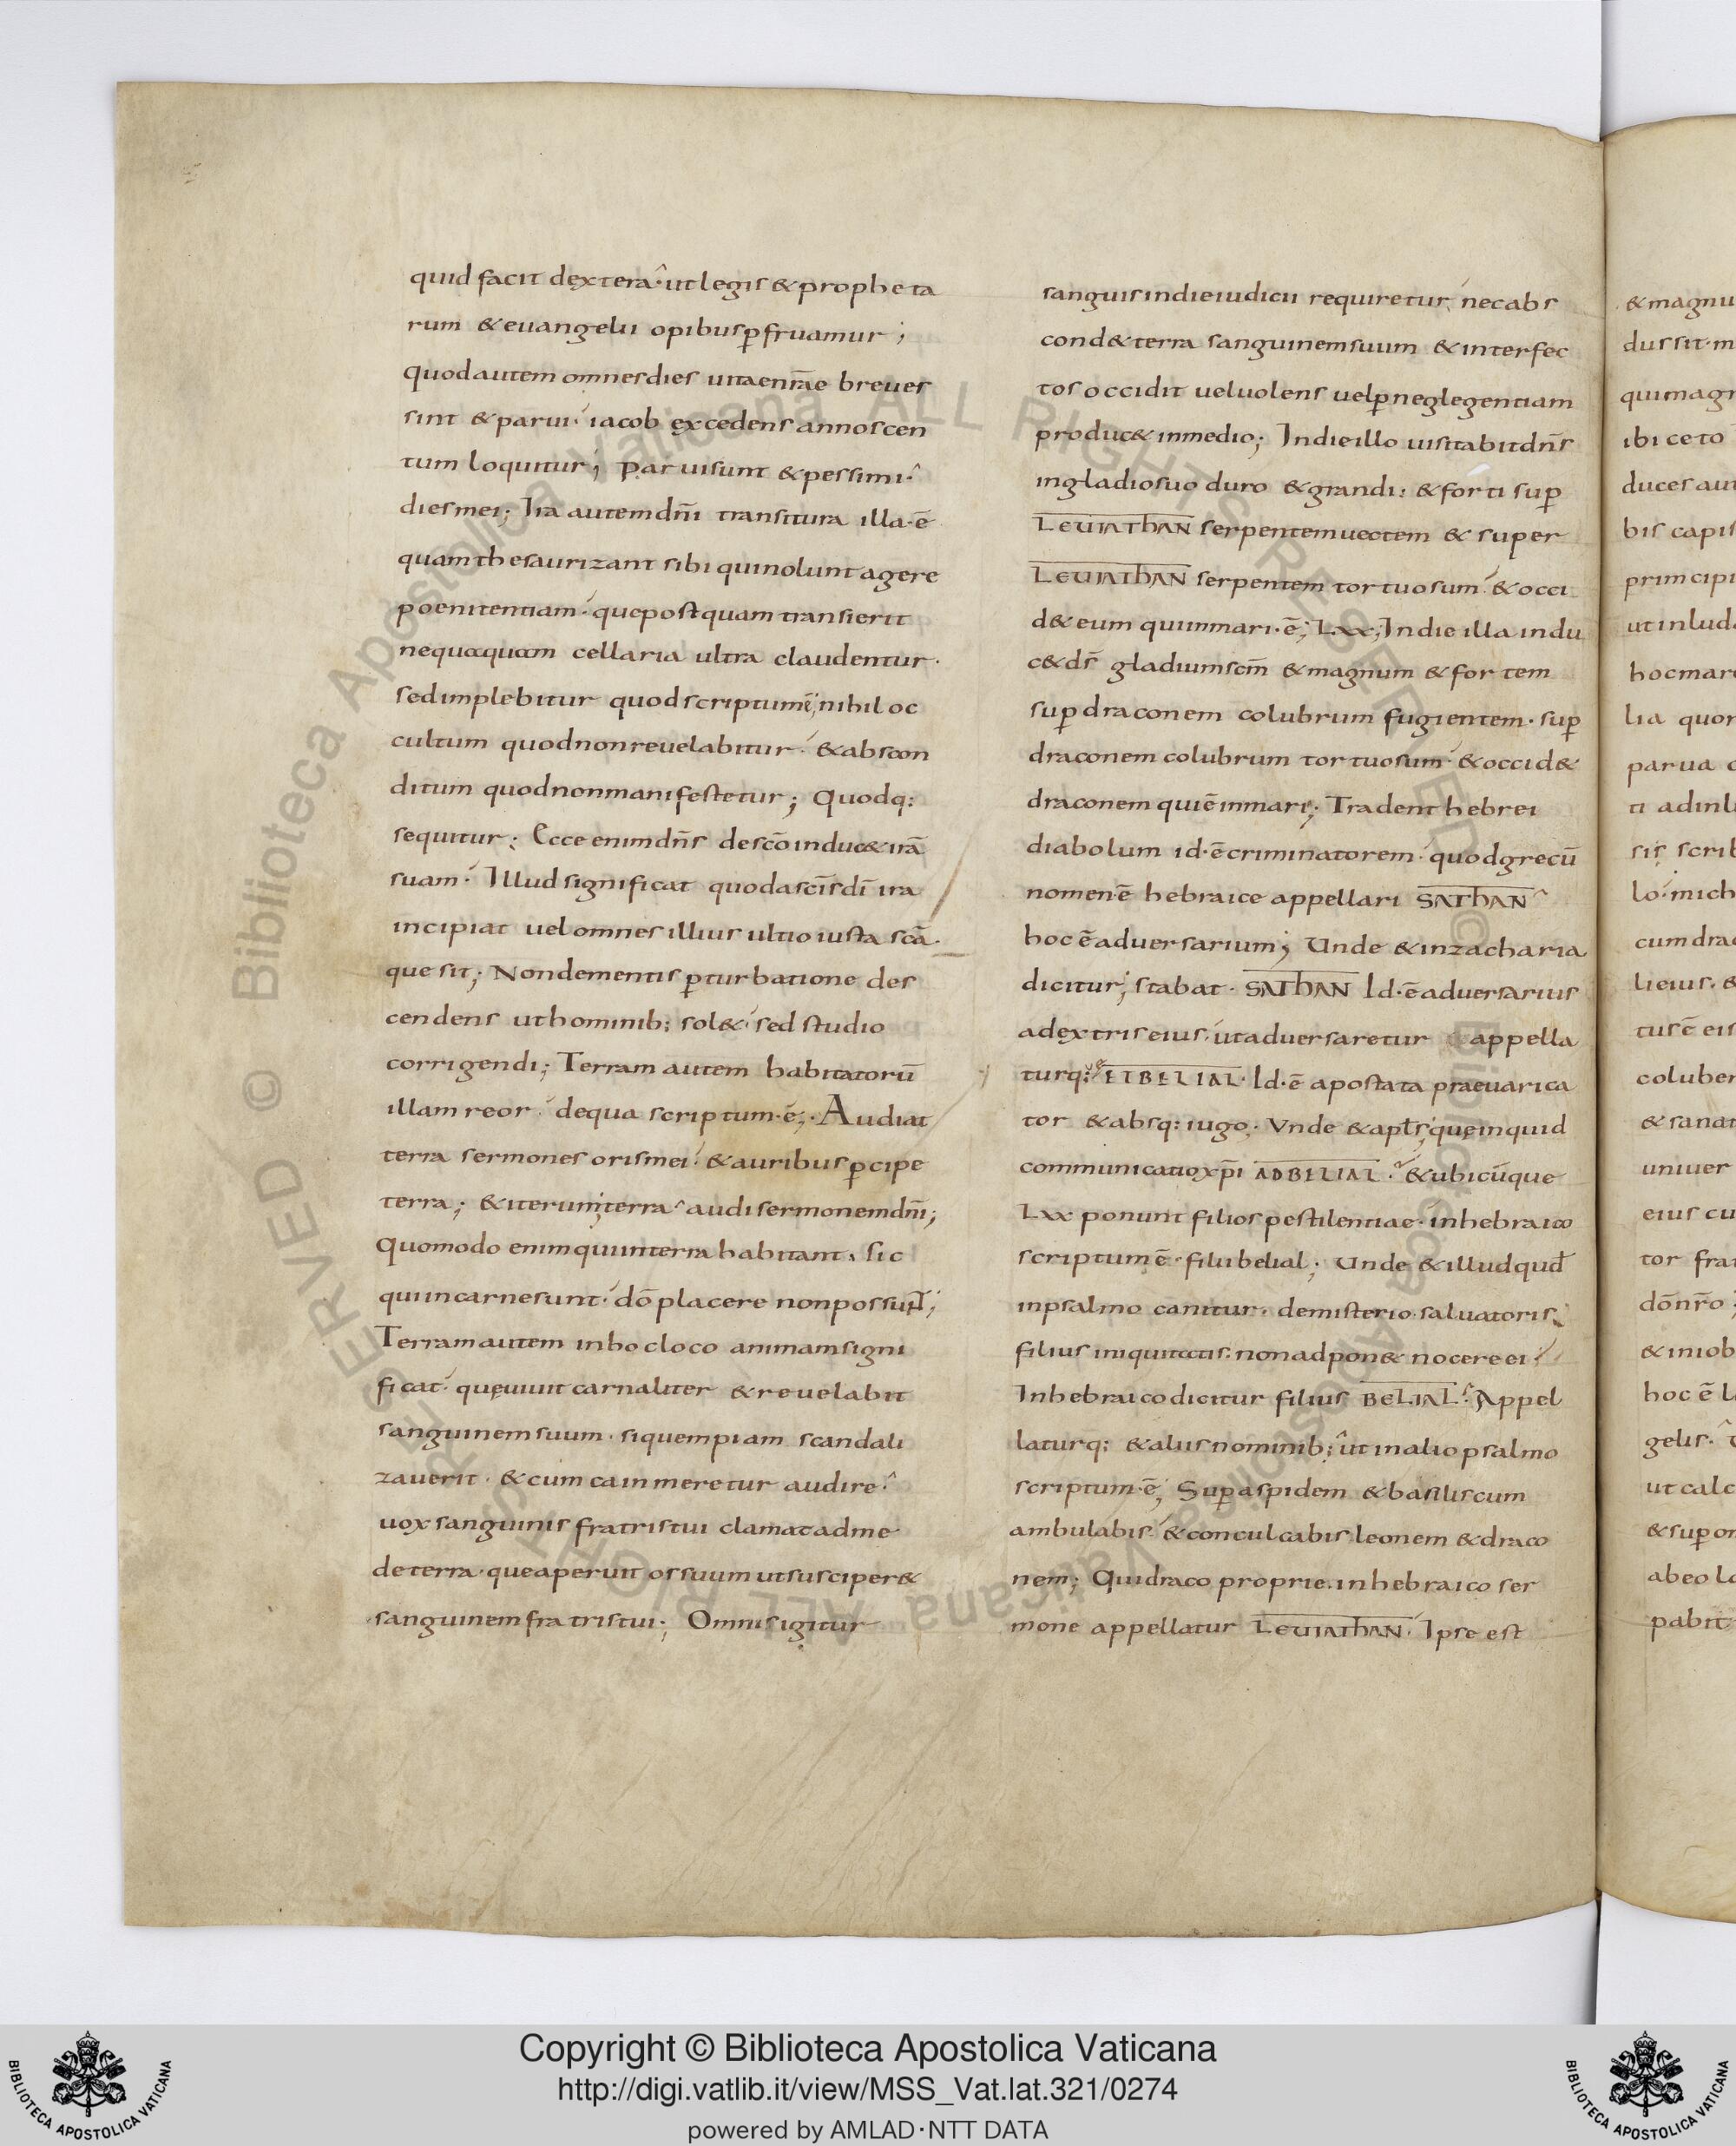 quid facit dextera· ut legis & propheta
rum & euangelii opibus ꝑfruamur;
quod autem omnes dies uitae nr̄ae breues
sint & parui· iacob excedens annos cen
tum loquitur; Parui sunt & pessimi·
dies mei; Ira autem dn̄i transitura illa·ē
quam thesaurizant sibi qui nolunt agere
poenitentiam· que postquam transierit
nequaquam cellaria ultra claudentur·
sed implebitur quod scriptum ē; nihil oc
cultum quod non reuelabitur· & abscon
ditum quod non manifestetur; Quodq:
sequitur; Ecce enim dn̄s de sc̄o induc& irā
suam· Illud significat quod a sc̄is dī ira
incipiat uel omnes illius ultio iusta scā·
que sit; Non de mentis ꝑturbatione des
cendens ut hominib; sol&· sed studio
corrigendi; Terram autem habitatorū
illam reor· de qua scriptum·ē; Audiat
terra sermones oris mei· & auribus ꝑcipe
terra; & iterum; terra audi sermonem dn̄i;
Quomodo enim qui in terra habitant· sic
qui in carne sunt· dō placere non possunt;
Terram autem in hoc loco animam signi
ficat· quę uiuit carnaliter & reuelabit
sanguinem suum· si quempiam scandali
zauerit· & cum cain meretur audire·
uox sanguinis fratris tui clamat ad me
de terra· que aperuit os suum ut susciper&
sanguinem fratris tui; Omnis igitur
sanguis in die iudicii requiretur· nec abs
cond& terra sanguinem suum & interfec
tos occidit uel uolens uel ꝑ neglegentiam
produc& in medio; In die illo uisitabit dn̄s
in gladio suo duro & grandi: & forti suꝑ
LEUIATHAN serpentem uectem & super
LEUIATHAN serpentem tortuosum· & occi
d& eum qui in mari·ē; Lxx; In die illa indu
c& dr̄ gladium scm̄ & magnum & fortem
suꝑ draconem colubrum fugientem· suꝑ
draconem colubrum tortuosum· & occid&
draconem qui ē in mari; Tradent hebrei
diabolum id·ē criminatorem· quod grecū
nomen·ē hebraice appellari SATHAN
hoc ē aduersarium; Unde & in zacharia
dicitur; stabat· SATHAN Id·ē aduersarius
a dextris eius· ut aduersaretur appella
turq: ETBELIAL· Id·ē apostata praeuarica
tor & absq: iugo· Vnde & apl̄s; quę inquid
communicatio xp̄i ADBELIAL· & ubicūque
Lxx ponunt filios pestilentiae· in hebraico
scriptum ē· filii belial; Unde & illud qud̄
in psalmo canitur· de misterio saluatoris;
filius iniquitatis· non adpon& nocere ei·
In hebraico dicitur filius BELIAL· Appel
laturq: & aliis nominib; ut in alio psalmo
scriptum·ē; Suꝑ aspidem & basiliscum
ambulabis· & conculcabis leonem & draco
nem; Qui draco proprie· in hebraico ser
mone appellatur LEUIATHAN· Ipse est
& magnu
dus sit· m
qui magn
ibi ceto
duces aut
bis capis
principi
ut inluda
hoc mare
lia quor
parua c
ti ad inl
sis scrib
lo· mich
cum drac
li eius· &
tus ē eis
coluber
& sanat
uniuer
eius cu
tor frat
dō nr̄o;
& in iob
hoc ē l
gelis·
ut calc
& suꝑ om
ab eo lo
pabit
Copyright © Biblioteca Apostolica Vaticana
http://digi.vatlib.it/view/MSS_Vat.lat.321/0274
powered by AMLAD·NTT DATA
BIBLIOTECA APOSTOLICA VATICANA
BIBLIOTECA APOSTOLICA VATICANA
© Biblioteca Apostolica Vaticana ALL RIGHTS RESERVED
© Biblioteca Apostolica Vaticana ALL RIGHTS RESERVED